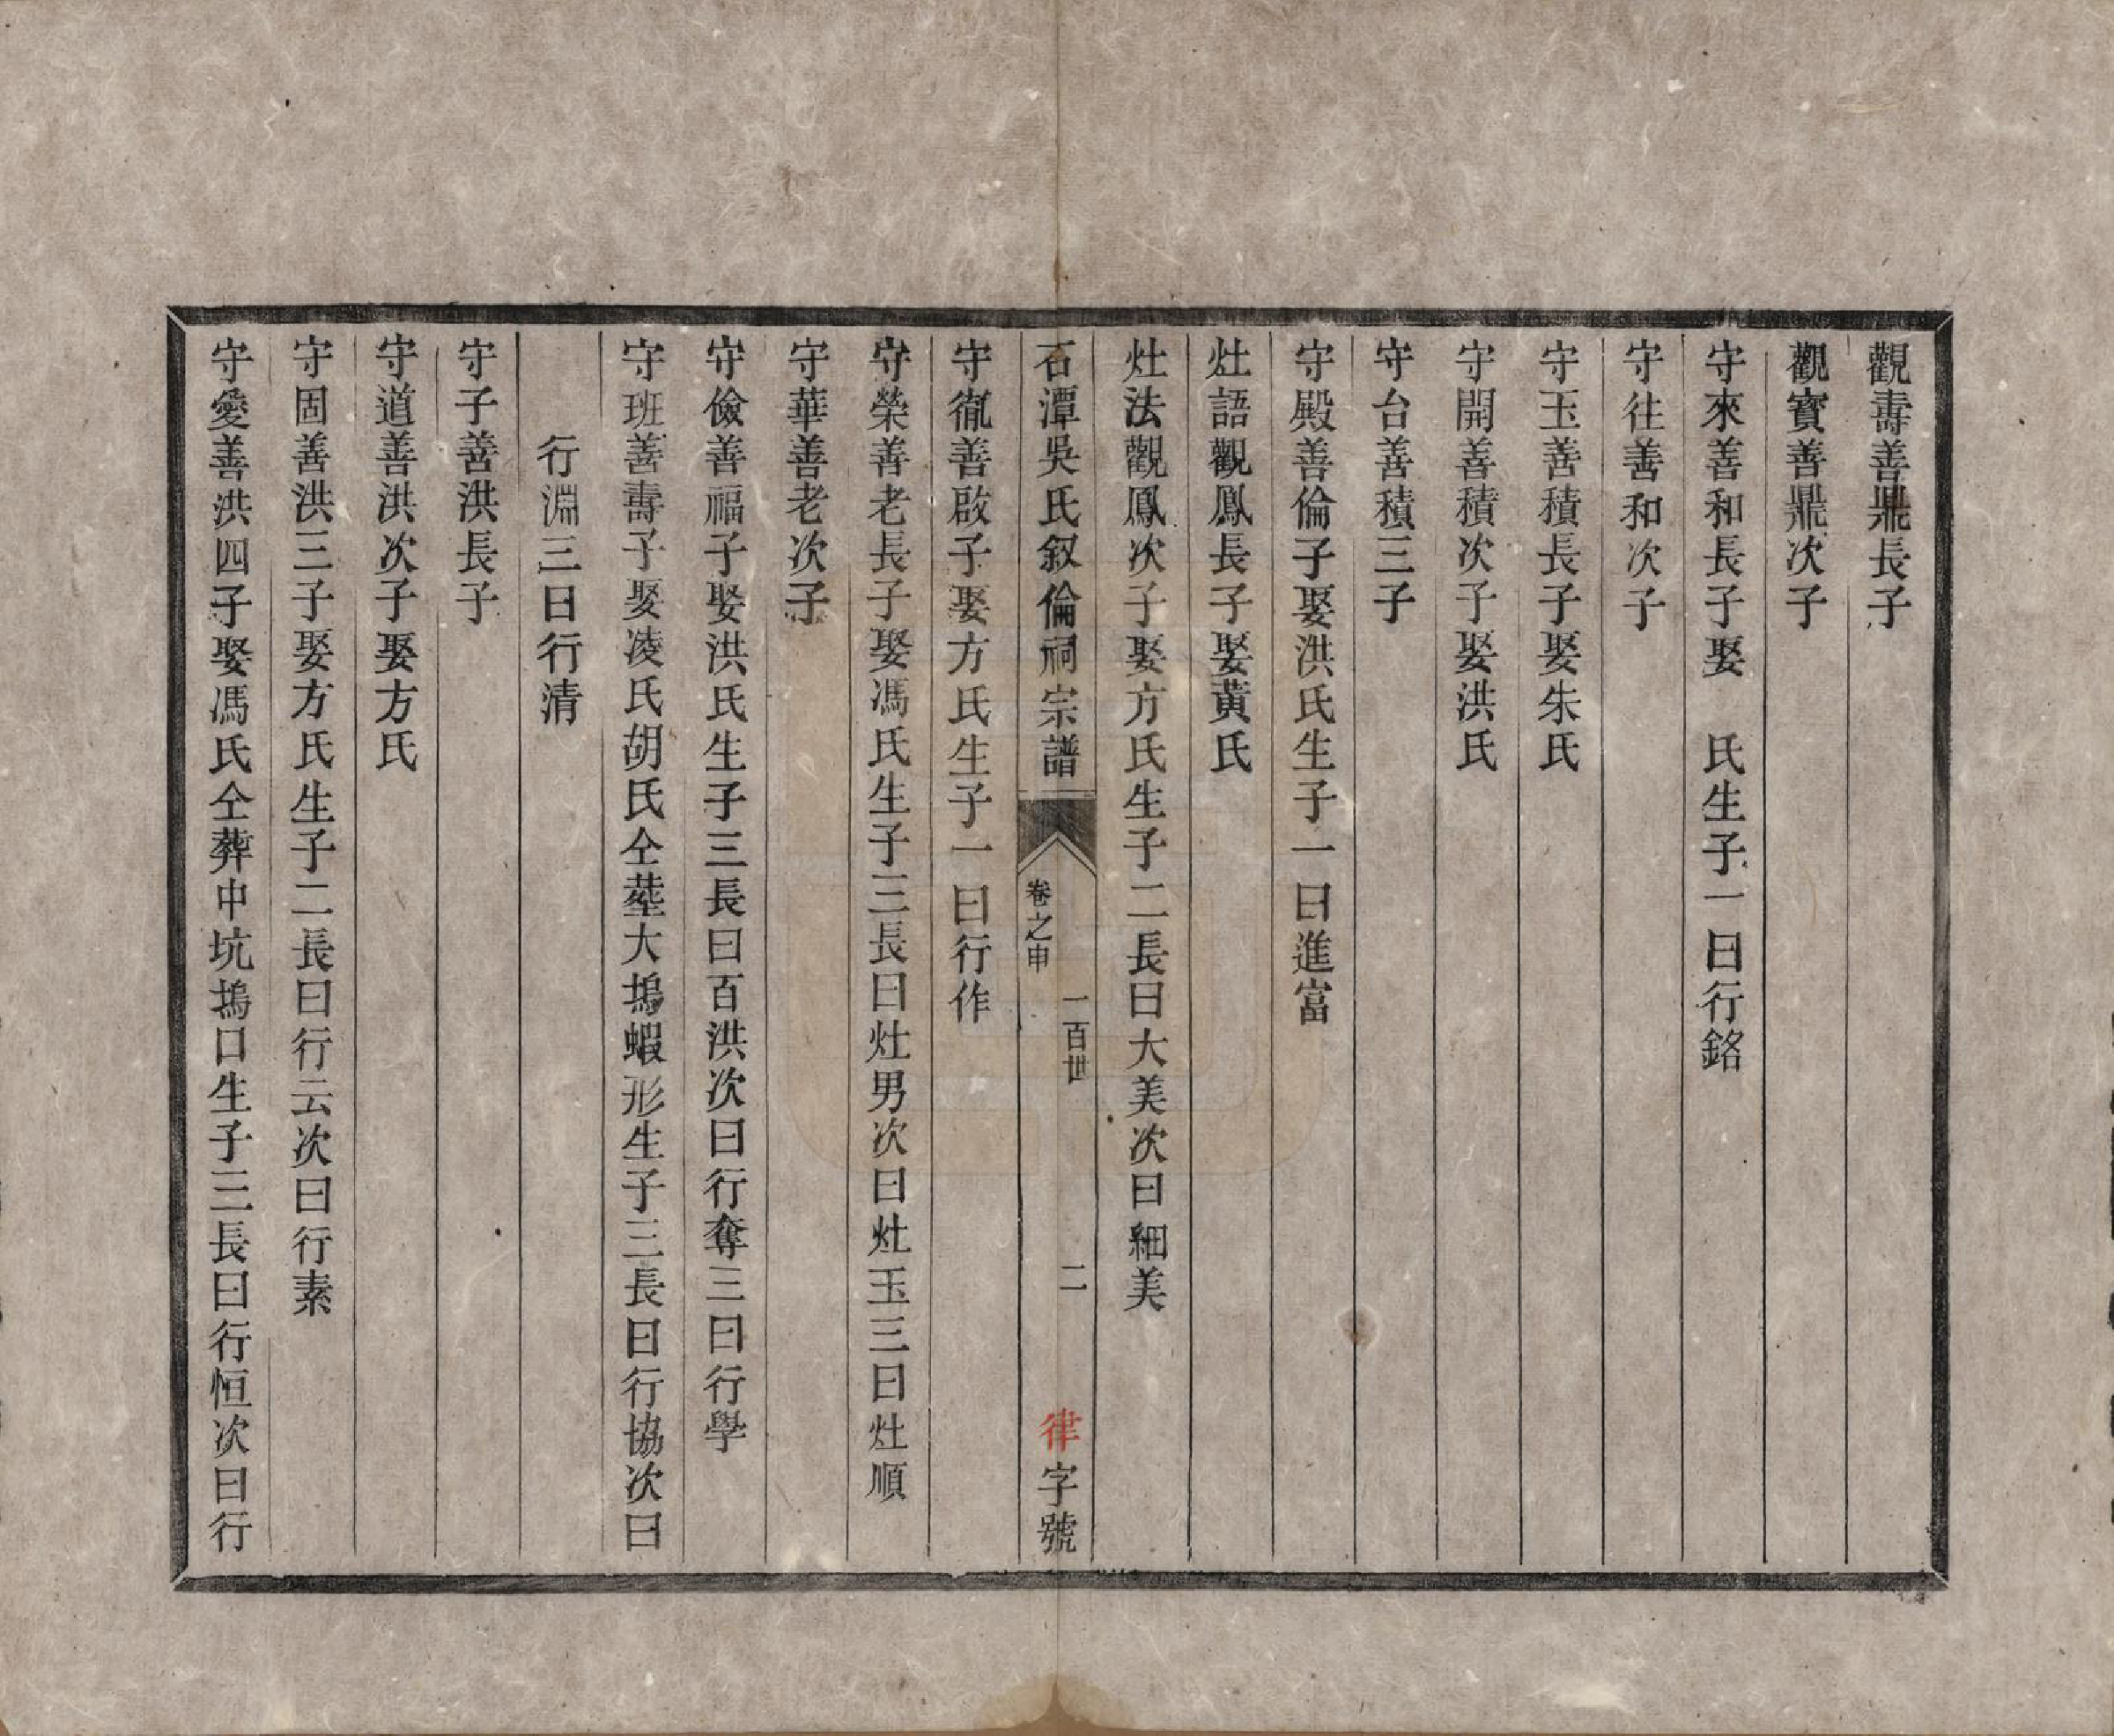 觀壽善鼎長子
觀寳善鼎次子
守來善和長子娶　氏生子一曰行銘
守往善和次子
守玉善積長子娶朱氏
守開善積次子娶洪氏
守台善積三子
守殿善倫子娶洪氏生子一曰進富
灶語觀鳳長子娶黃氏
灶法觀鳳次子娶方氏生子二長曰大美次曰細美
石潭吳氏叙倫祠宗譜
卷之申
一百世
二
律字號
守㣧善啟子娶方氏生子一曰行作
守榮善老長子娶馮氏生子三長曰灶男次曰灶玉三曰灶順
守華善老次子
守儉善福子娶洪氏生子三長曰百洪次曰行奪三曰行學
守班善壽子娶凌氏胡氏仝塟大塢蝦形生子三長曰行協次曰
行淵三曰行清
守子善洪長子
守道善洪次子娶方氏
守固善洪三子娶方氏生子二長曰行云次曰行素
守愛善洪四子娶馮氏仝葬中坑塢口生子三長曰行恒次曰行